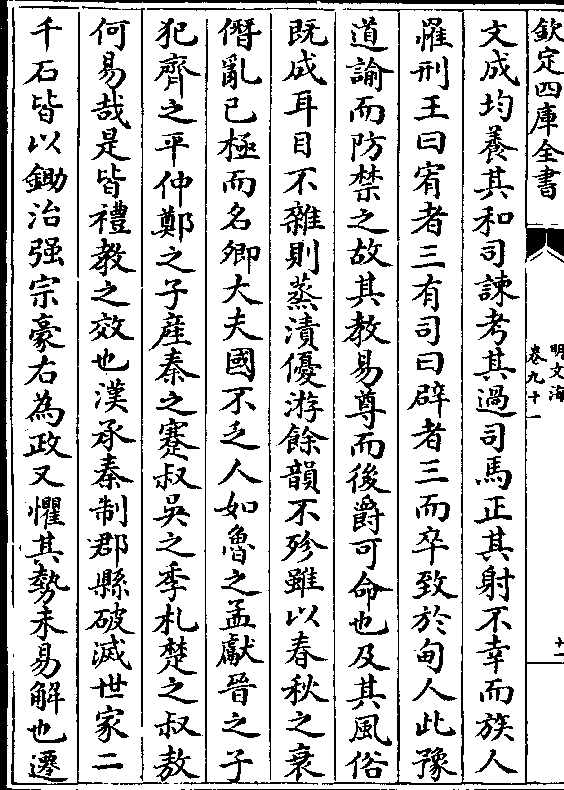 欽定四庫全書
明文海
卷九十一
十一
文成均養其和司諫考其過司馬正其射不幸而族人
罹刑王曰宥者三有司曰辟者三而卒致於甸人此豫
道論而防禁之故其教易尊而後爵可命也及其風俗
既成耳目不雜則蒸漬優游餘韻不殄雖以春秋之衰
僭亂已極而名卿大夫國不乏人如魯之孟獻晉之子
犯齊之平仲鄭之子産秦之蹇叔吳之季札楚之叔敖
何易哉是皆禮教之效也漢承秦制郡縣破滅世家二
千石皆以鋤治强宗豪右為政又懼其勢未易解也遷